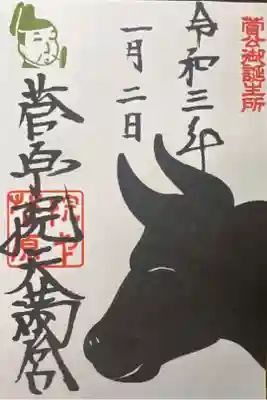 菅公御誕生所
令和三年
一月二日
菅原院天満宮